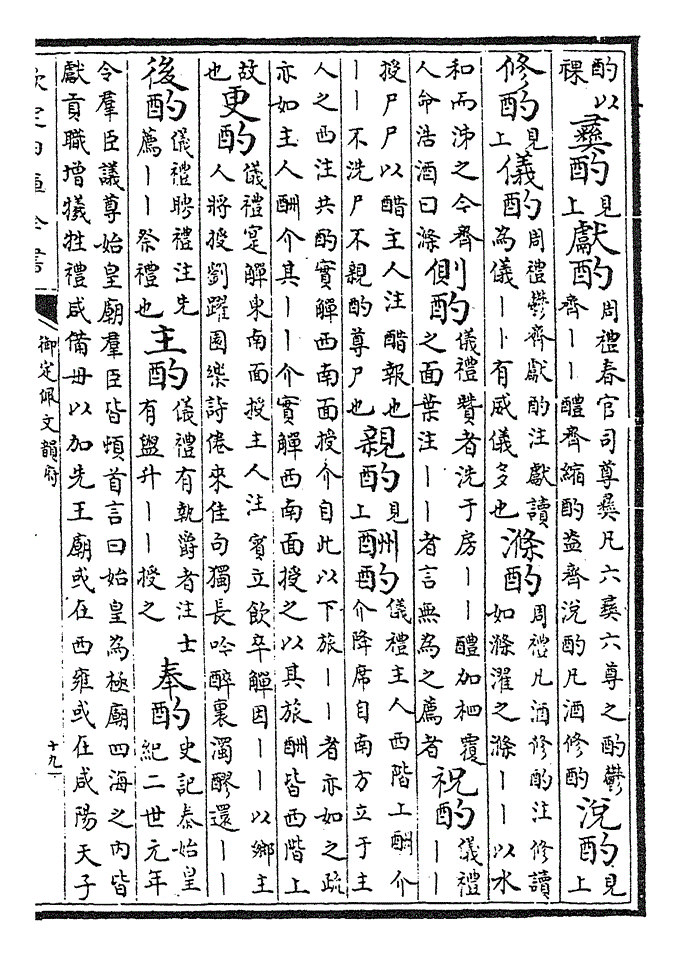 酌以祼彛酌見上獻酌周禮春官司尊彛凡六彛六尊之酌鬱齊丨丨醴齊縮酌盎齊涗酌凡酒修酌涗酌見上
修酌見上儀酌周禮鬱齊獻酌注獻讀為儀丨丨有威儀多也滌酌周禮凡酒修酌注修讀如滌濯之滌丨丨以水
和而沸之今齊人命浩酒曰滌側酌儀禮贊者洗于房丨丨醴加柶覆之面葉注丨丨者言無為之薦者祝酌儀禮丨丨
授尸尸以醋主人注醋報也丨丨不洗尸不親酌尊尸也親酌見上酬酌儀禮主人西階上酬介介降席自南方立于主
人之西注共酌實觶西南面授介自此以下旅丨丨者亦如之疏亦如主人酬介其丨丨介實觶西南面授之以其旅酬皆西階上
故也更酌儀禮寔觶東南面授主人注賓立飲卒觶因丨丨以鄉主人將授劉躍園樂詩倦來佳句獨長吟醉裏濁醪還丨丨
後酌儀禮聘禮注先薦丨丨祭禮也主酌儀禮有執爵者注士有盥升丨丨授之奉酌史記秦始皇紀二世元年
令羣臣議尊始皇廟羣臣皆頓首言曰始皇為極廟四海之内皆獻貢職增犧牲禮咸備毋以加先王廟或在西雍或在咸陽天子
欽定四庫全書
御定佩文韻府
十九